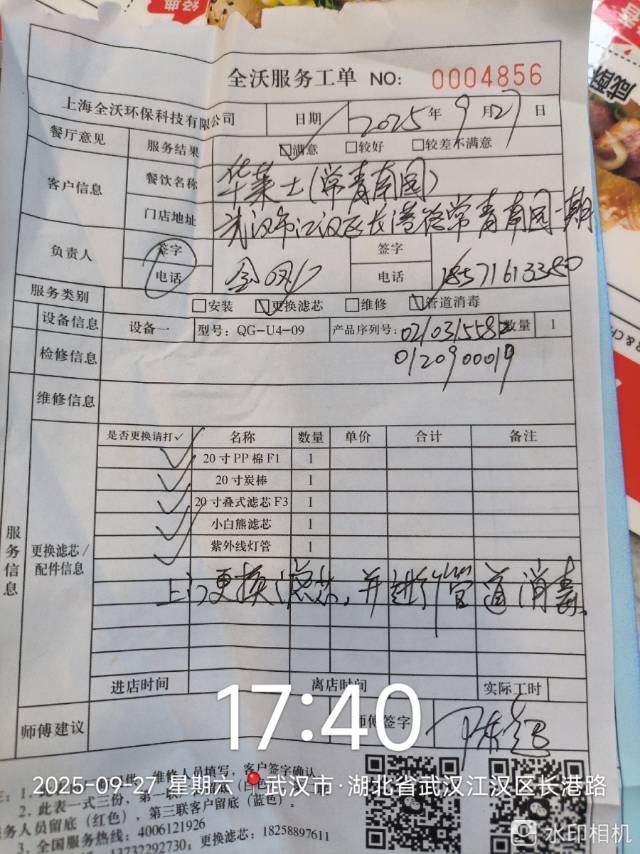 全沃服务工单 NO: 0004856
上海全沃环保科技有限公司 日期 2025年9月27日
餐厅意见 服务结果 ☑满意 □较好 □较差不满意
客户信息 餐饮名称 华莱士(常青南园)
门店地址 武汉市江汉区长港路常青南园一期
负责人 签字 签字
电话 电话 18571613380
服务类别 □安装 ☑更换滤芯 □维修 ☑管道消毒
设备信息 设备一 型号: QG-U4-09 产品序列号: 数量 1
0120900019
检修信息
维修信息
服务信息
更换滤芯/配件信息
是否更换请打✓ 名称 数量 单价 合计 备注
✓ 20寸PP棉F1 1
✓ 20寸炭棒 1
✓ 20寸叠式滤芯F3 1
✓ 小白熊滤芯 1
✓ 紫外线灯管 1
上门更换滤芯,并进行管道消毒.
进店时间 离店时间 实际工时
17:40
师傅建议 师傅签字
维修人员填写,客户签字确认
2025-09-27 星期六 武汉市·湖北省武汉江汉区长港路
2. 此表一式三份,第一
人员留底(红色),第三联客户留底(蓝色)。
3. 全国服务热线: 4006121926
13732292730; 更换滤芯: 18258897611
水印相机